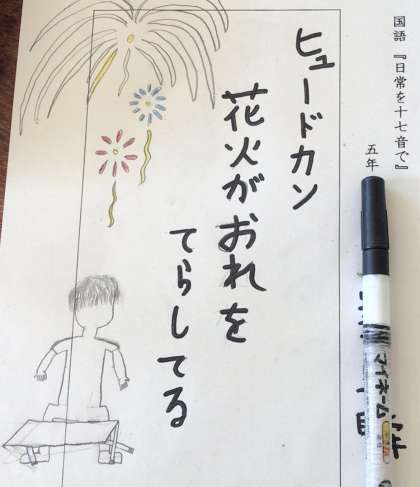 国語『日常を十七音で』
五年
ヒュードカン
花火がおれを
てらしてる
マイネーム